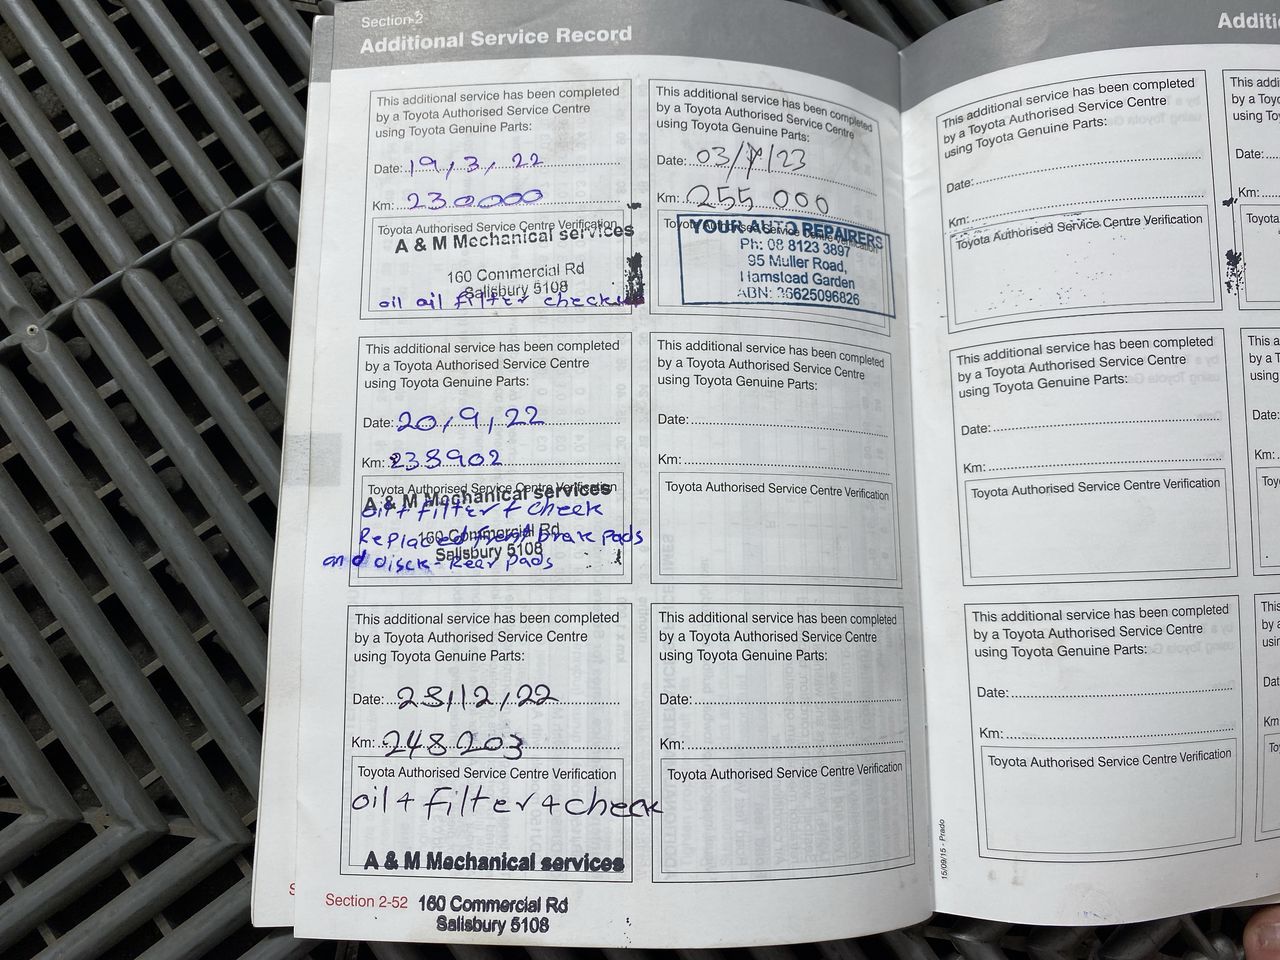 Section-2
Additional Service Record
This additional service has been completed
by a Toyota Authorised Service Centre
using Toyota Genuine Parts:
Date: 19/3/22
Km: 230000
Toyota Authorised Service Centre Verification
A & M Mechanical services
160 Commercial Rd
Salisbury 5108
oil oil filter check
This additional service has been completed
by a Toyota Authorised Service Centre
using Toyota Genuine Parts:
Date: 20/9/22
Km: 238902
Toyota Authorised Service Centre Verification
A & M Mechanical services
oil + filter + check
Replaced front brake pads
160 Commercial Rd
Salisbury 5108
and disck - Rear pads
This additional service has been completed
by a Toyota Authorised Service Centre
using Toyota Genuine Parts:
Date: 28/12/22
Km: 248203
Toyota Authorised Service Centre Verification
oil + filter + check
A & M Mechanical services
160 Commercial Rd
Salisbury 5108
Section 2-52
This additional service has been completed
by a Toyota Authorised Service Centre
using Toyota Genuine Parts:
Date: 03/7/23
Km: 255 000
Toyota Authorised Service Centre Verification
YOUR AUTO REPAIRERS
Ph: 08 8123 3897
95 Muller Road,
Hamstead Garden
ABN: 36625096826
This additional service has been completed
by a Toyota Authorised Service Centre
using Toyota Genuine Parts:
Date:
Km:
Toyota Authorised Service Centre Verification
This additional service has been completed
by a Toyota Authorised Service Centre
using Toyota Genuine Parts:
Date:
Km:
Toyota Authorised Service Centre Verification
This additional service has been completed
by a Toyota Authorised Service Centre
using Toyota Genuine Parts:
Date:
Km:
Toyota Authorised Service Centre Verification
This additional service has been completed
by a Toyota Authorised Service Centre
using Toyota Genuine Parts:
Date:
Km:
Toyota Authorised Service Centre Verification
This additional service has been completed
by a Toyota Authorised Service Centre
using Toyota Genuine Parts:
Date:
Km:
Toyota Authorised Service Centre Verification
15/09/15 - Prado